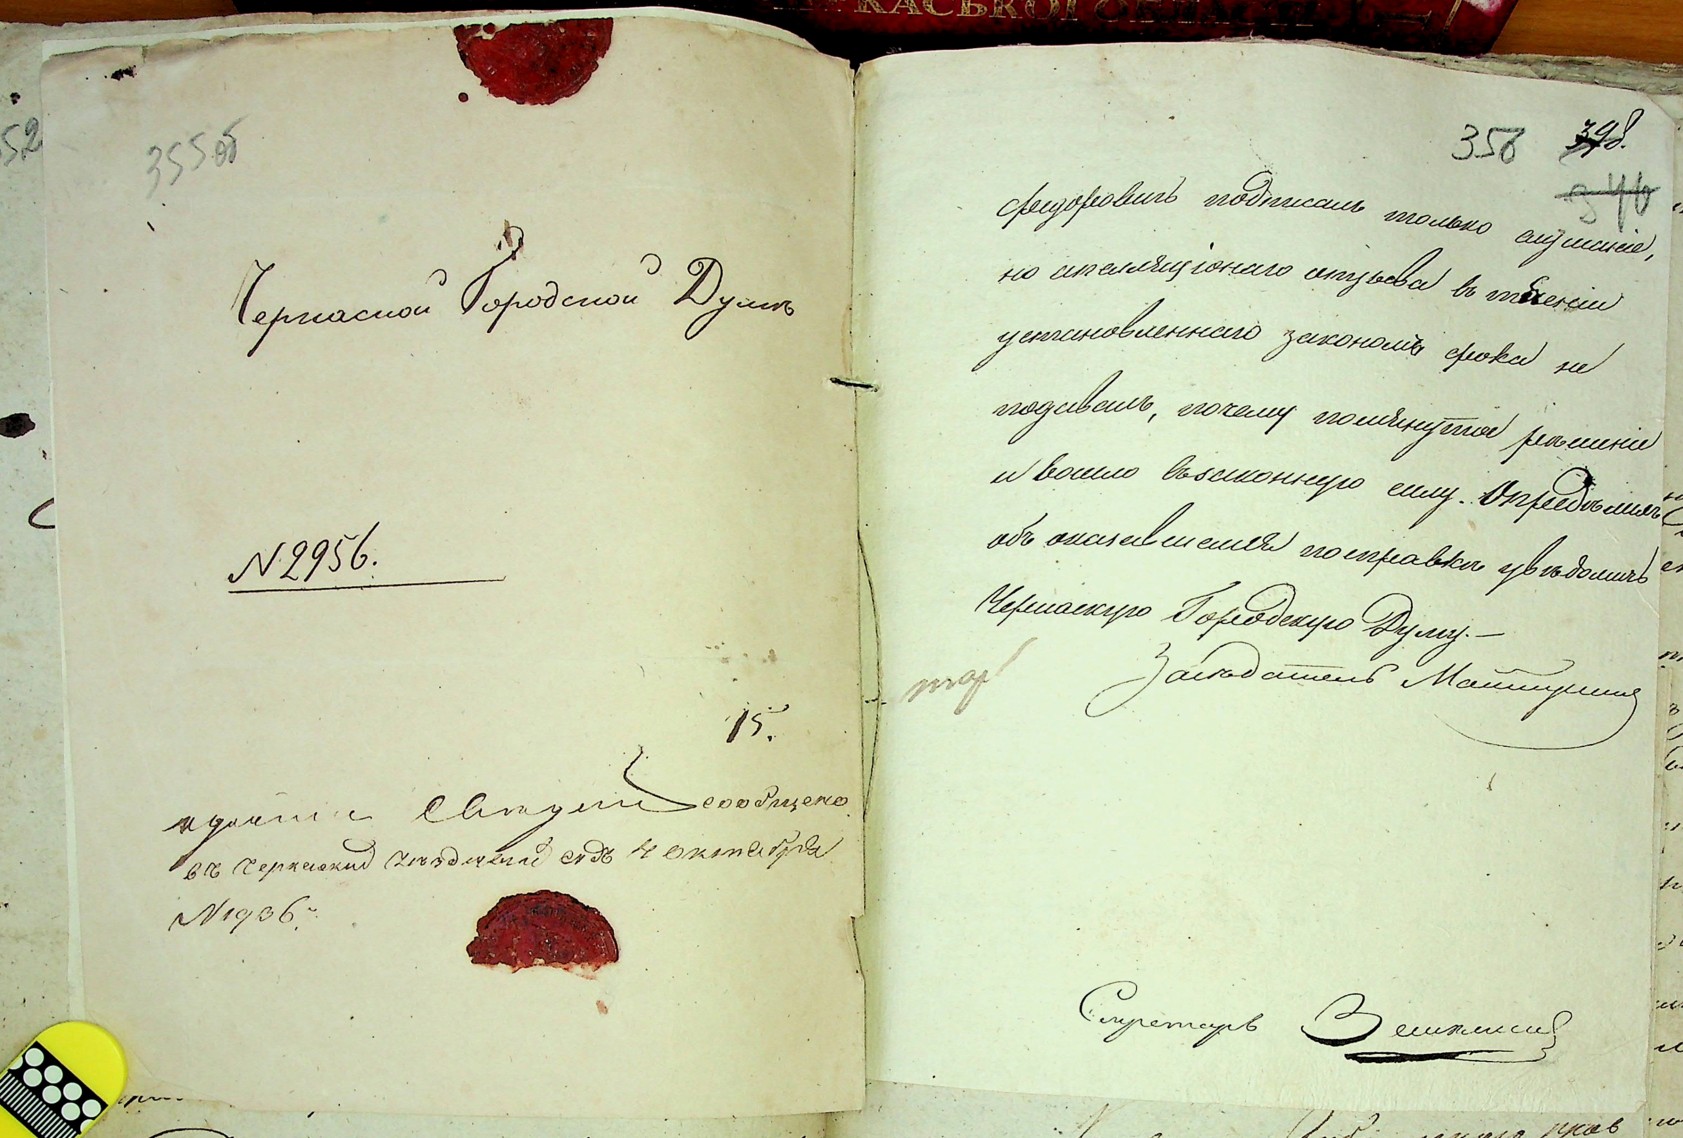 355об
Черкаской Городской Думѣ
N 2956.
15.
сообщено
въ Черкаский Уѣздный судъ 4 октября
N 1936.
356 398.
346
Федоровичъ подписалъ только слушаніе,
но апелляціоннаго отзыва въ теченіи
установленнаго закономъ срока не
подавалъ, почему помянутое рѣшеніе
и вошло въ законную силу. Опредѣлилъ
объ оказавшемся по справкѣ увѣдомить
Черкаскую Городскую Думу.—
Засѣдатель
Секретарь